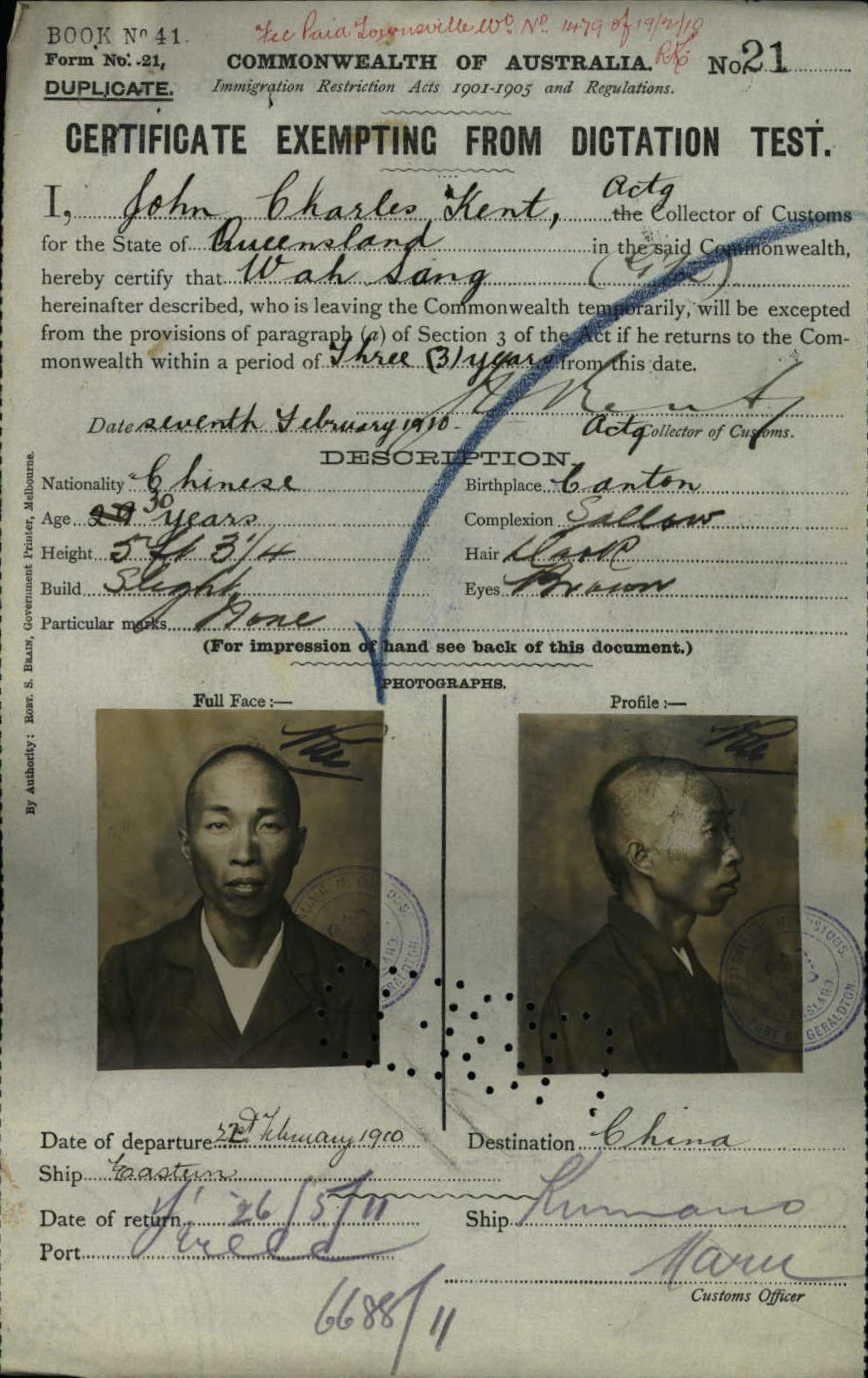 BOOK Nº 41.
Fee Paid Townsville Wt. Nº 1479 of 19/2/10
Form No. 21.
COMMONWEALTH OF AUSTRALIA.
No. 21
DUPLICATE.
Immigration Restriction Acts 1901-1905 and Regulations.
CERTIFICATE EXEMPTING FROM DICTATION TEST.
I, John Charles Kent, Actg the Collector of Customs
for the State of Queensland in the said Commonwealth,
hereby certify that Wah Sang
hereinafter described, who is leaving the Commonwealth temporarily, will be excepted
from the provisions of paragraph (a) of Section 3 of the Act if he returns to the Com-
monwealth within a period of Three (3) years from this date.
Kent
Date seventh February 1910
Actg Collector of Customs.
DESCRIPTION.
Nationality Chinese
Birthplace Canton
Age 30 years
Complexion Sallow
Height 5 ft 3 1/4
Hair Dark
Build Slight
Eyes Brown
Particular marks None
(For impression of hand see back of this document.)
PHOTOGRAPHS.
Full Face :—
Profile :—
GERALDTON
Date of departure 22nd February 1910
Destination China
Ship Eastern
Date of return 26/5/11
Ship Kumano
Port
Maru
Customs Officer
6688/11
By Authority: ROBT. S. BRAIN, Government Printer, Melbourne.